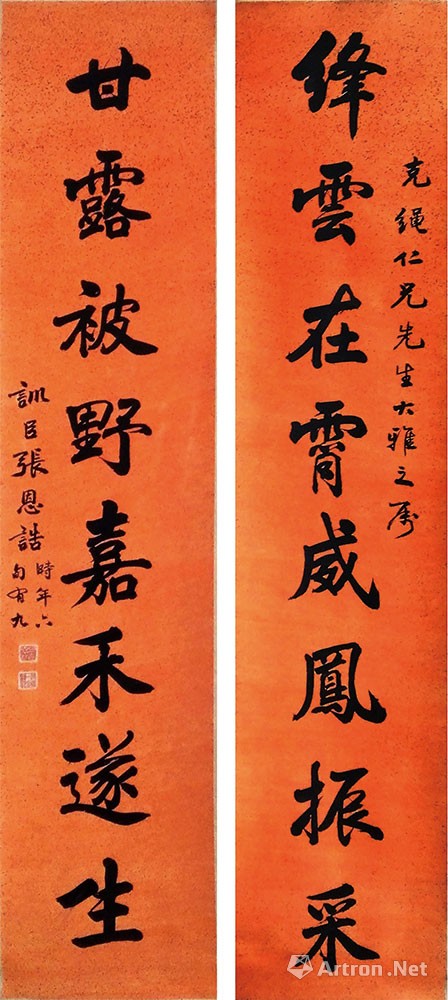 克繩仁兄先生大雅之属
絳雲在霄威鳳振采
甘露被野嘉禾遂生
訓臣張恩誥時年六
旬有九
Artron.Net